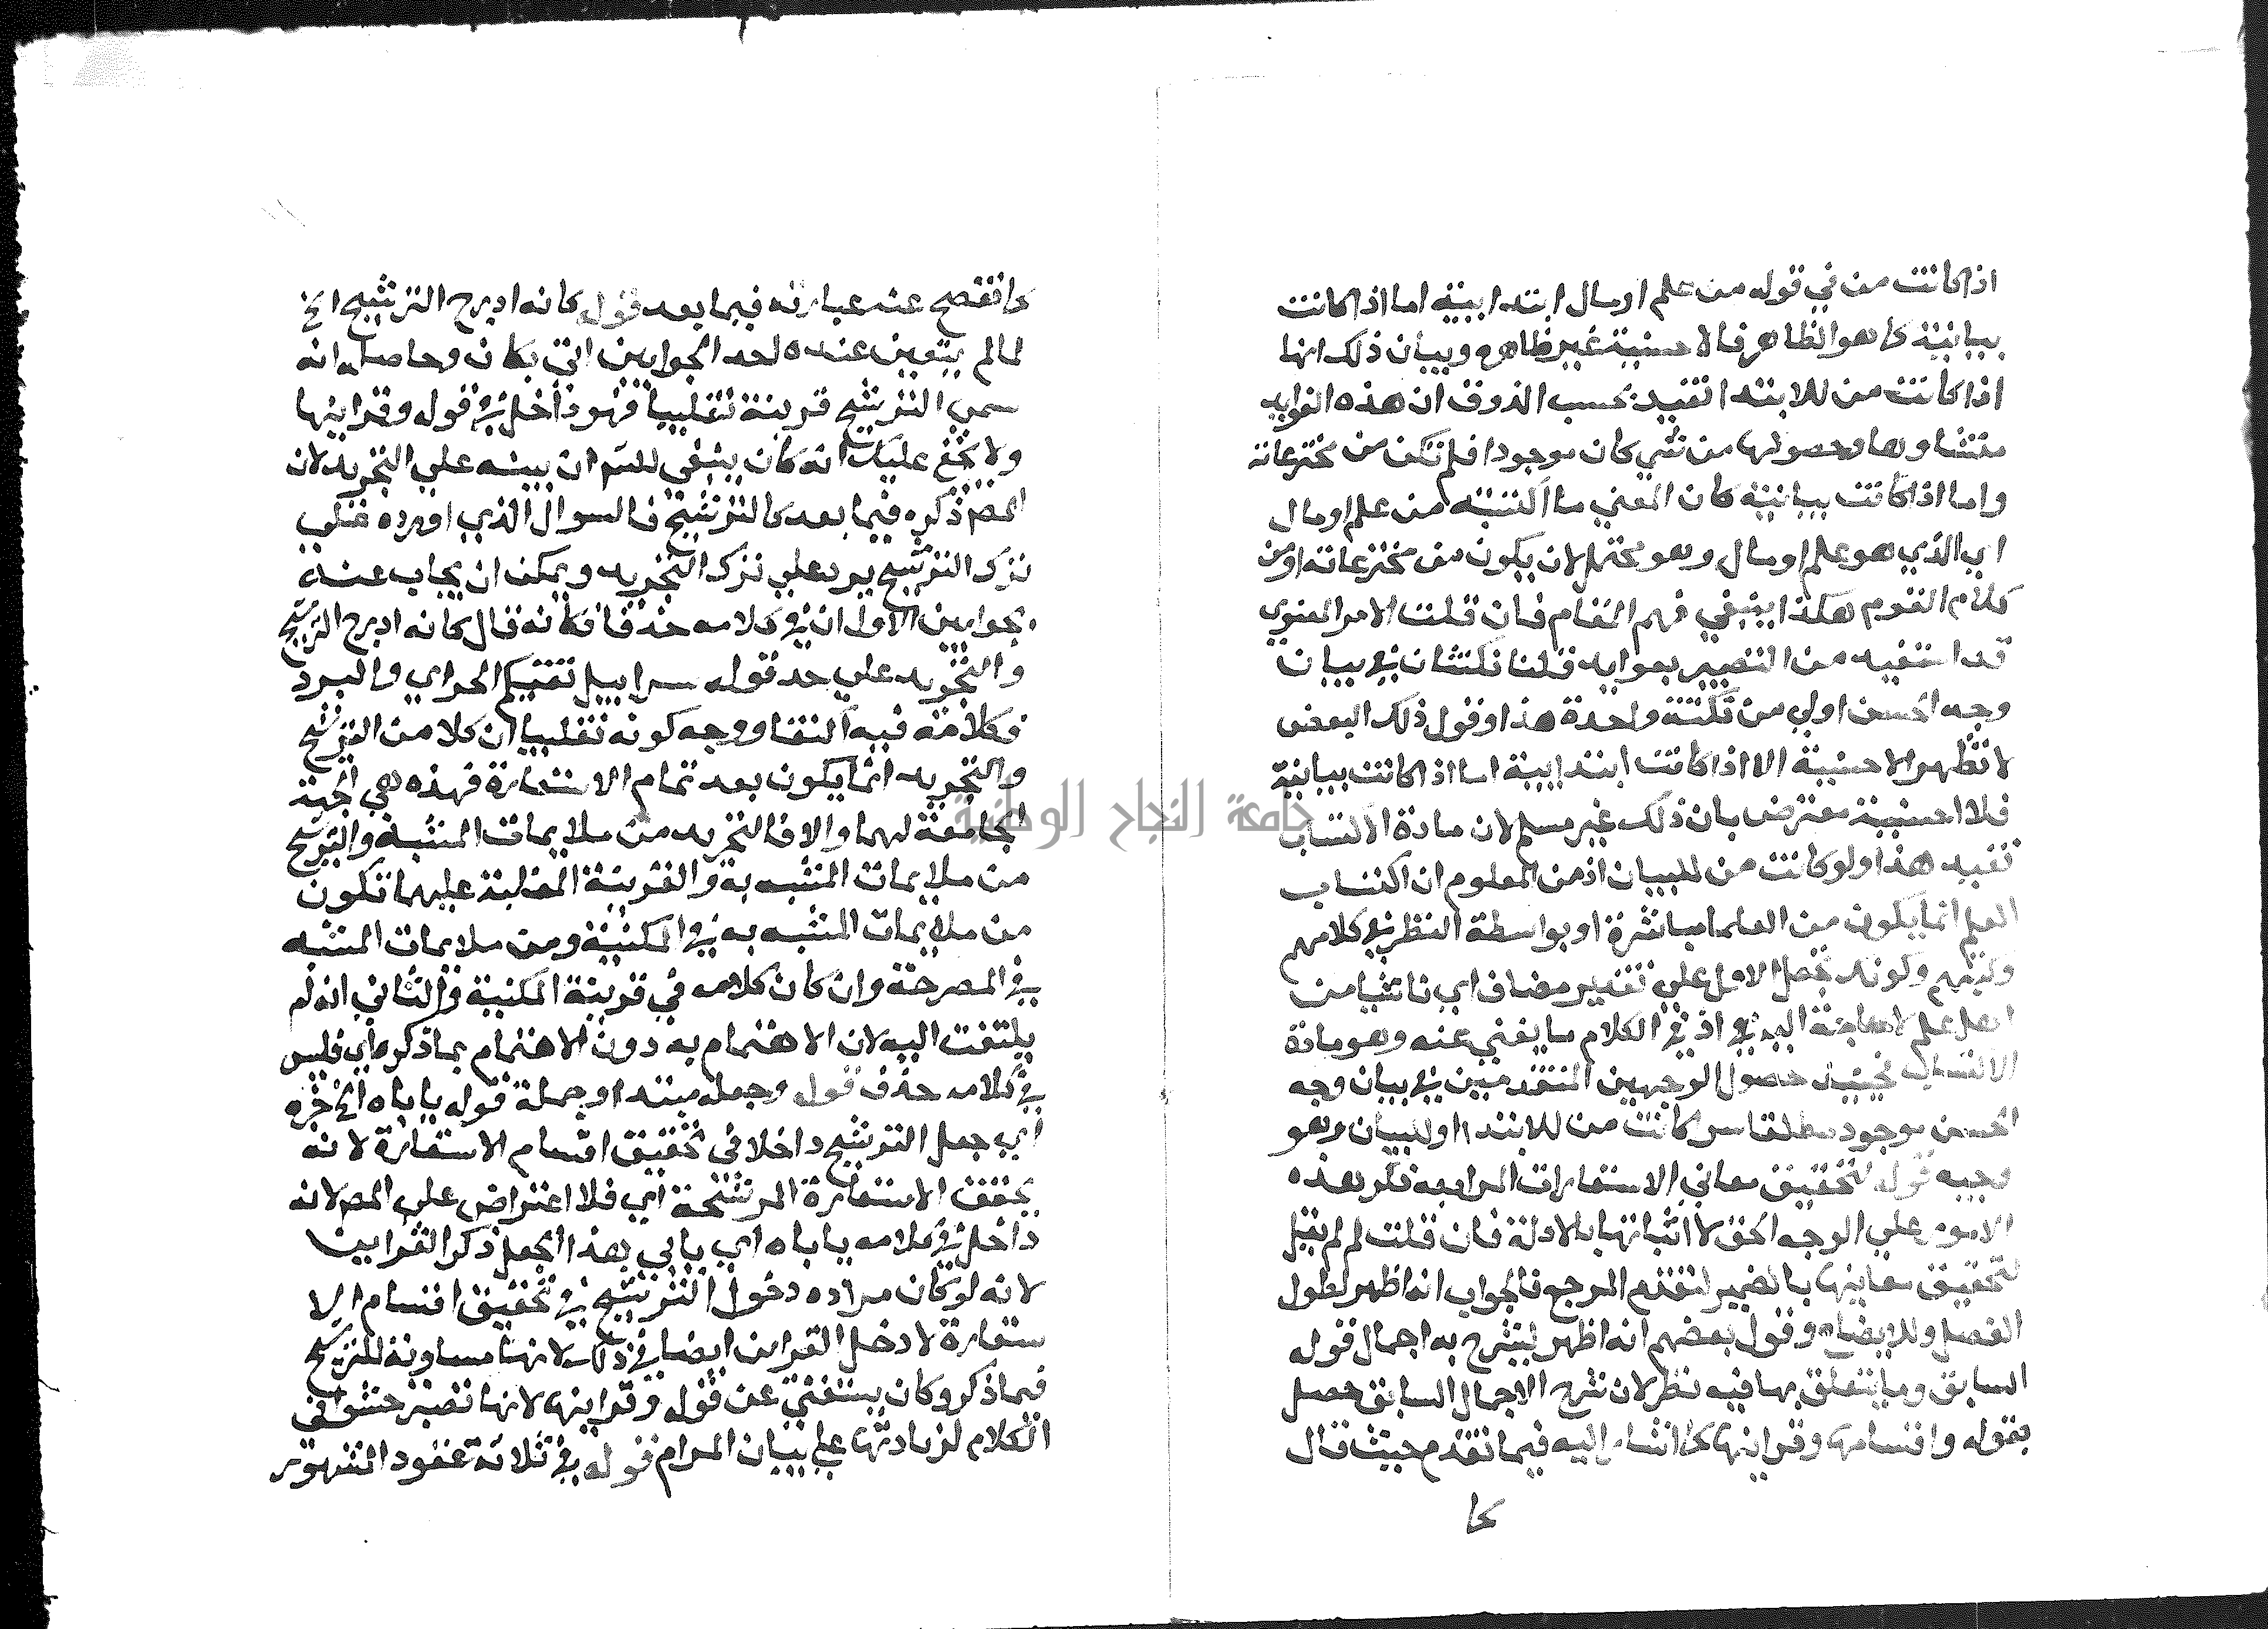 اذا كانت من في قوله من علم او مال ابتدايية اما اذا كانت
بيانية كما هو الظاهر فالاحسنية غير ظاهرة وبيان ذلك انها
اذا كانت من للابتدا تفيد بحسب الذوق ان هذه الفوايد
منشاوها وحصولها من شي كان موجودا فلم تكن من مخترعاته
واما اذا كانت بيانية كان المعني ما اكتسبته من علم او مال
اي الذي هو علم او مال وهو محتمل لان يكون من مخترعاته او من
كلام القوم هكذا ينبغي فهم المقام فان قلت الامر المعنوي
قد استفيد من التعبير بعوايد قلنا نكتتان في بيان
وجه الحسن اولي من نكتة واحدة هذا وقول ذلك البعض
لا تظهر الاحسنية الا اذا كانت ابتدايية اما اذا كانت بيانية
فلا احسنية معترض بان ذلك غير مسلم لان مادة الاكتساب
تفيد هذا ولو كانت من للبيان اذ من المعلوم ان اكتساب
العلم انما يكون من العلما مباشرة او بواسطة النظر في كلامهم
وكتبهم وكونه بجعل الاول علي تقدير مضاف اي ناشيا من
اهل علم لا حاجة اليه في اذ في الكلام ما يغني عنه وهو مادة
الاكتساب فحينيذ حصول الوجهين المتقدمين في بيان وجه
الحسن موجود مطلقا سوا كانت من للابتدا او للبيان وهو
وجيه قوله لتحقيق معاني الاستعارات المراد به ذكر هذه
الامور علي الوجه الحق لا اثباتها بالادلة فان قلت لم لم يقل
لتحقيق معانيها بالضمير لتقدم المرجع فالجواب انه اظهر لطول
الفصل وللايضاح وقول بعضهم انه اظهر ليشرح به اجمال قوله
السابق وما يتعلق بها فيه نظر لان شرح الاجمال السابق حصل
بقوله واقسامها وقراينها كما اشار اليه فيما تقدم حيث قال
كما
كما تفصح عنه عبارته فيما بعد قوله كانه ادرج الترشيح الخ
لما لم يتعين عنده احد الجوابين اتي بكان وحاصله انه
سمي الترشيح قرينة تغليبا فهو داخل في قوله وقراينها
ولا يخفي عليك انه كان ينبغي للشم ان ينبه علي التجريد لان
المص ذكره فيما بعد كالترشيح فالسوال الذي اورده علي
ترك الترشيح يرد علي ترك التجريد ويمكن ان يجاب عنه
بجوابين الاول ان في كلامه حذفا فكانه قال كانه ادرج الترشيح
والتجريد علي حد قوله سرابيل تقيكم الحر اي والبرد
فكلامه فيه اكتفا ووجه كونه تغليبا ان كلا من الترشيح
والتجريد انما يكون بعد تمام الاستعارة فهذه هي الجهة
الجامعة لهما والا فالتجريد من ملايمات المشبه والترشيح
من ملايمات المشبه به والقرينة المغلبة عليهما تكون
من ملايمات المشبه به في المكنية ومن ملايمات المشبه
في المصرحة وان كان كلامه في قرينة المكنية والثاني انه لم
يلتفت اليه لان الاهتمام به دون الاهتمام بما ذكره اي فليس
في كلامه حذف قوله وجعله مبتدا وجملة قوله ياباه الخ خبره
اي جعل الترشيح داخلا في تحقيق اقسام الاستعارة لانه
يحقق الاستعارة المرشحة اي فلا اعتراض علي المص لانه
داخل في كلامه ياباه اي يابي هذا الجعل ذكر القراين
لانه لو كان مراده دخول الترشيح في تحقيق اقسام الا
ستعارة لادخل القراين ايضا في ذلك لانها مساوية للترشيح
فيما ذكر وكان يستغني عن قوله وقراينها لانها تصير حشوا في
الكلام لزيادتها علي بيان المرام قوله في ثلاثة عقود المشهور
جامعة النجاح الوطنية